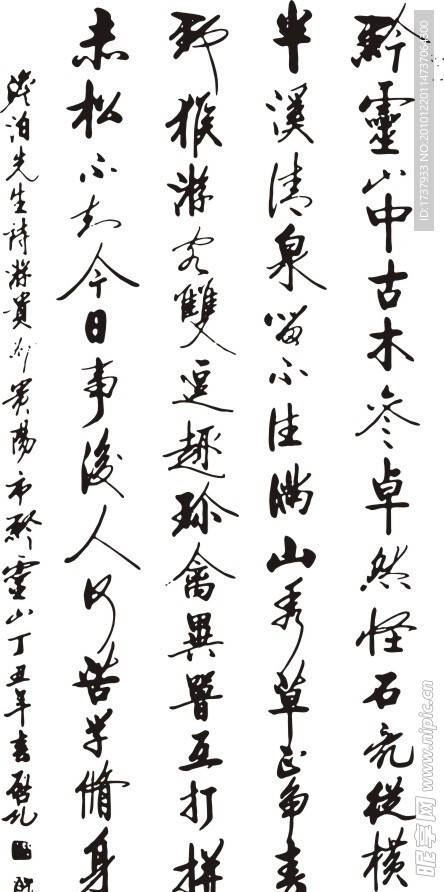 黔靈山中古木參卓然怪石亮從橫
半溪清泉留不住滿山秀草正争春
野猴游客雙逗趣珍禽異嘼互打拼
赤松不知今日事後人何苦学脩身
泊先生詩游貴州貴陽市黔靈山丁丑年春
ID:1737933 NO:20101220114737064300
昵图网 www.nipic.cn